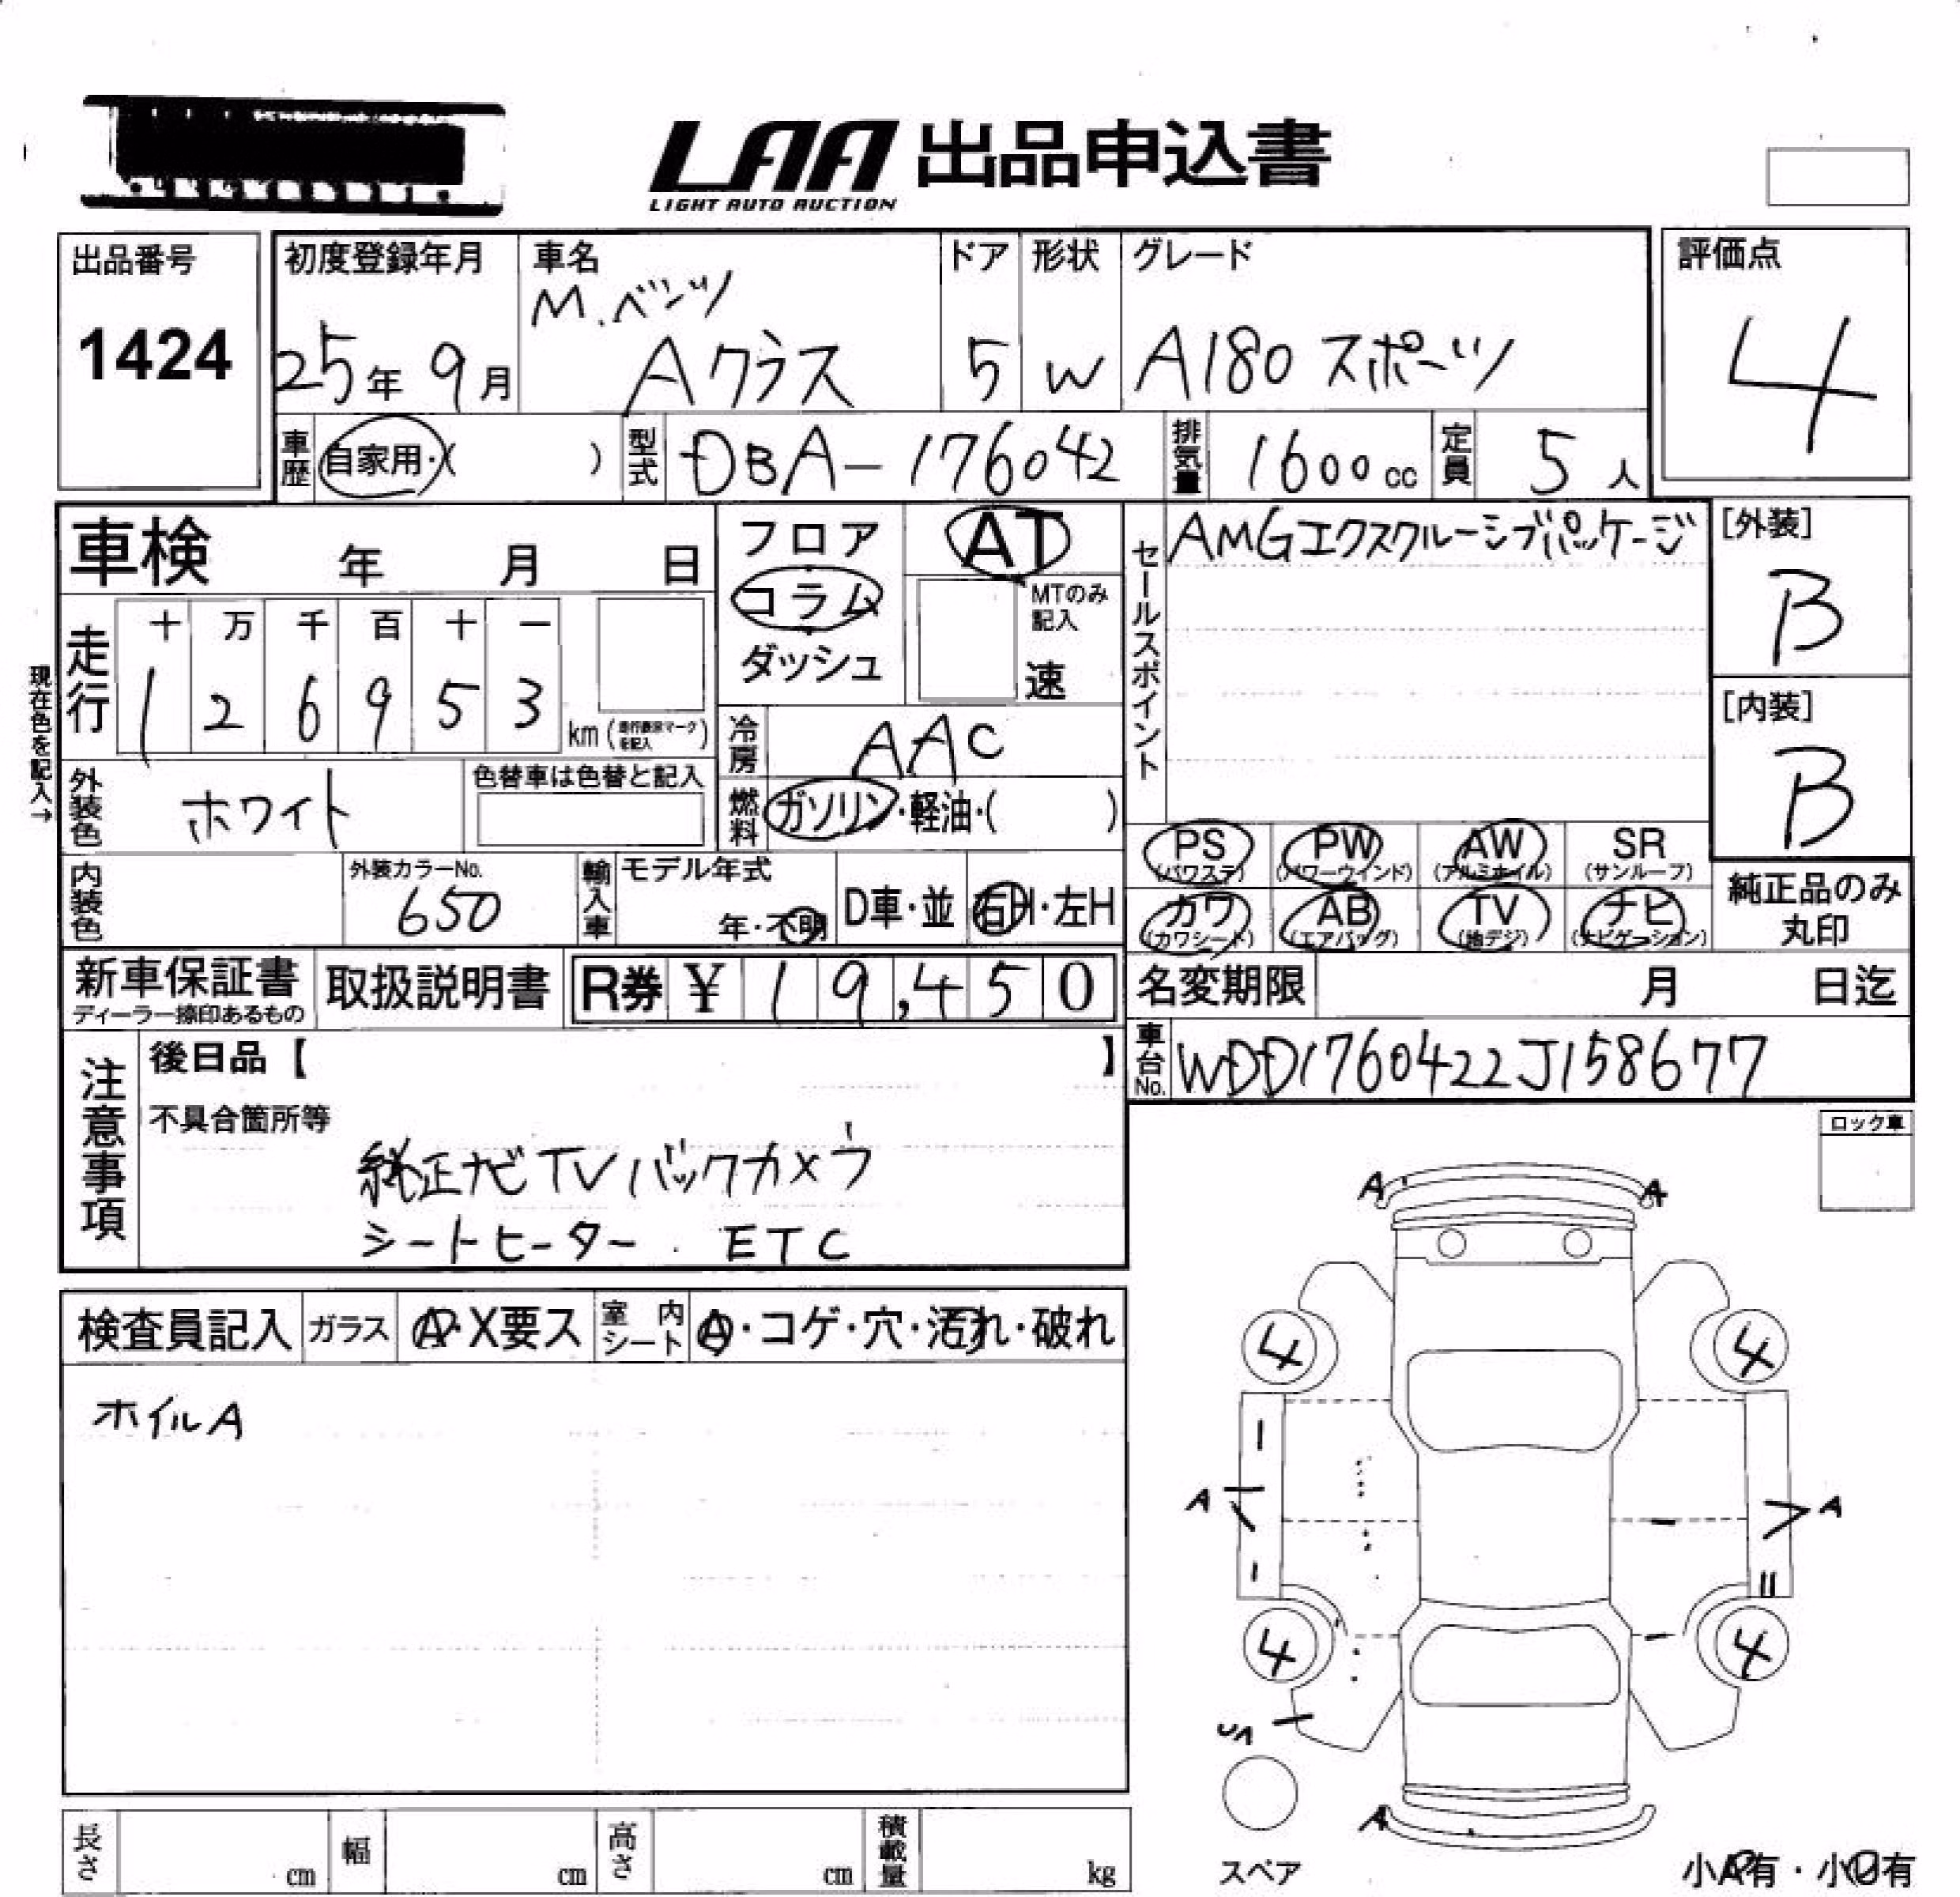 LAA 出品申込書
LIGHT AUTO AUCTION
出品番号
1424
初度登録年月
25年 9月
車名
M.ベンツ
Aクラス
ドア
5
形状
W
グレード
A180 スポーツ
評価点
4
車歴 自家用・( )
型式 DBA-176042
排気量 1600cc
定員 5人
車検 年 月 日
現在色を記入→
走行
十 万 千 百 十 一
1 2 6 9 5 3
km (走行表示マークを記入)
フロア
コラム
ダッシュ
AT
MTのみ記入
速
冷房 AAC
燃料 ガソリン・軽油・( )
セールスポイント
AMGエクスクルーシブパッケージ
[外装]
B
[内装]
B
外装色 ホワイト
色替車は色替と記入
内装色
外装カラーNo.
650
輸入車
モデル年式
年・不明
D車・並
右H・左H
PS (パワステ)
PW (パワーウインド)
AW (アルミホイル)
SR (サンルーフ)
カワ (カワシート)
AB (エアバッグ)
TV (地デジ)
ナビ (ナビゲーション)
純正品のみ
丸印
新車保証書
ディーラー捺印あるもの
取扱説明書
R券 ¥ 19,450
名変期限 月 日迄
車台No. WDD1760422J158677
注意事項
後日品【 】
不具合箇所等
純正ナビTVバックカメラ
シートヒーター. ETC
ロック車
検査員記入
ガラス A・X要ス
室内シート A・コゲ・穴・汚れ・破れ
ホイルA
A A
4 4
A A
4 4
A
スペア
長さ cm
幅 cm
高さ cm
積載量 kg
小A有・小U有